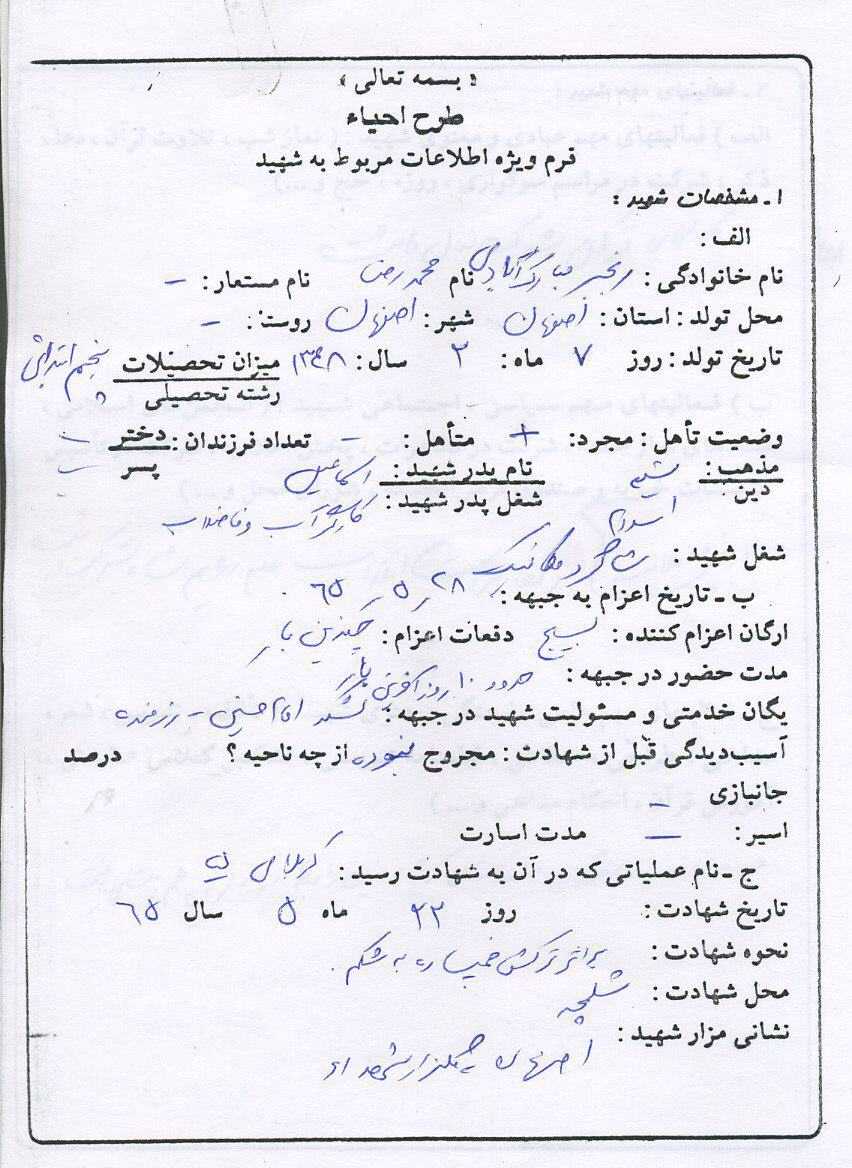 « بسمه تعالی »
طرح احیاء
فرم ویژه اطلاعات مربوط به شهید
۱ ـ مشخصات شهید :
الف :
نام خانوادگی : رنجبر مبارک آبادی نام محمد رضا نام مستعار : –
محل تولد : استان : اصفهان شهر : اصفهان روستا : –
تاریخ تولد : روز ۷ ماه : ۲ سال : ۱۳۴۸ میزان تحصیلات پنجم ابتدائی
رشته تحصیلی
وضعیت تأهل : مجرد : + متأهل : – تعداد فرزندان : دختر –
پسر –
مذهب : شیعه نام پدر شهید : اسماعیل
دین اسلام شغل پدر شهید : کارگر آب و فاضلاب
شغل شهید : شاگرد مکانیک
ب ـ تاریخ اعزام به جبهه : ۲۸ ـ ۵ ـ ۶۵
ارگان اعزام کننده : بسیج دفعات اعزام : چندین بار
مدت حضور در جبهه : حدود ۱۰ روز آخرین بار
یگان خدمتی و مسئولیت شهید در جبهه : لشکر امام حسین – رزمنده
آسیب‌دیدگی قبل از شهادت : مجروح نبوده از چه ناحیه ؟ درصد
جانبازی –
اسیر : – مدت اسارت
ج ـ نام عملیاتی که در آن به شهادت رسید : کربلای ۵
تاریخ شهادت : روز ۲۲ ماه ۵ سال ۶۵
نحوه شهادت : براثر ترکش خمپاره به شکم .
محل شهادت : شلمچه
نشانی مزار شهید : اصفهان گلزار شهداء